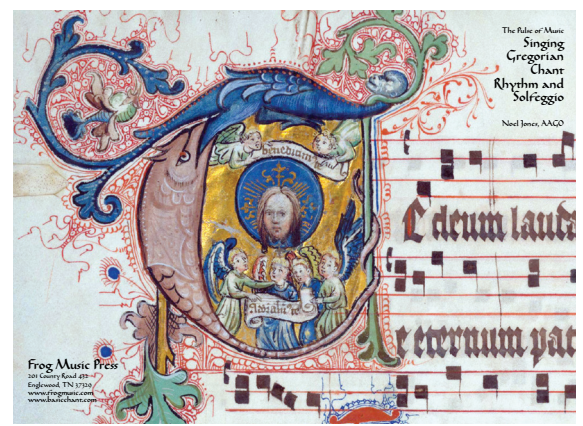 The Pulse of Music
Singing
Gregorian
Chant
Rhythm and
Solfeggio
Noel Jones, AAGO
benedicim
E deum lauda
Adoram te
e eternum pat
Frog Music Press
201 County Road 432
Englewood, TN 37329
www.frogmusic.com
www.basicchant.com